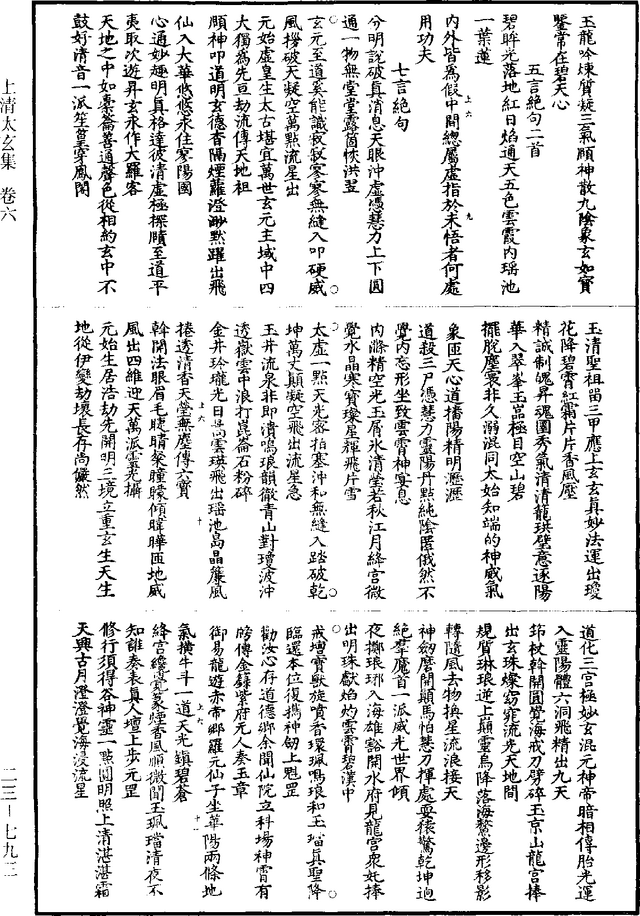 上清太玄集　卷六
二三—七九三
玉龍吟煉質凝三氣頤神散九陰象玄如寶
鑒常在碧天心
五言絕句二首
碧眸光落地紅日焰通天五色雲霞內瑶池
一葉蓮
內外皆為假中間總屬虛指於未悟者何處
用功夫
七言絕句
分明說破真消息天眼沖虛憑慧力上下圓
通一物無堂堂露箇恢洪羿
玄元至道奚能識寂寂寥寥無縫入叩硬威
風拶破天凝空萬點流星出
元始虛皇生太古堪宜萬世玄元主域中四
大獨為先亘劫流傳天地祖
頤神叩道明玄德杳隔煙蘿澄渺默躍出飛
仙入大華悠悠永住寥陽國
心通妙趣明真格達彼清虛極探賾至道平
夷取次遊昇玄永作大羅客
天地之中如橐籥善通聲色從相約玄中不
鼓好清音一派笙簧穿鳳閣
玉清聖祖留三甲應上玄玄真妙法運出瓊
花降碧霄紅霜片片香風壓
精誠制魄昇魂圓秀氣清清龍珙璧意逐陽
華入翠峯玉嵓極目空山碧
擺脫塵寰非久溺混同太始知端的神威氣
象匝天心道播陽精明瀝瀝
道殺三尸憑慧力靈陽丹點純陰匿俄然不
覺內忘形坐致雲霄神宴息
內滌精空光玉屑氷清瑩若秋江月絳宮微
覺水晶寒寶璨星輝飛片雪
太虛一點天光客拍塞沖和無縫入踏破乾
坤萬丈顛凝空飛出流星急
玉井流泉非即漬鳴琅韻徹青山對瓊波沖
透嶽雲中浪打崑崙石粉碎
金井玲瓏光日暠雲珙飛出瑶池島晶簾風
捲透清香天堂無塵傳六寶
幹開法眼眉毛睫睛粲瞳矇傾暐曄匝地威
風出四維迎天萬派雲光構
元始生居浩劫先開明三境立重玄生天生
地從伊變劫壞長存尚儼然
道化三宮極妙玄混元神帝暗相傳胎光運
入靈陽體六洞飛精出九天
笻杖幹開圓覺海戒刀劈碎玉京山龍宮捧
出玄珠燦窈窕流光天地間
規質琳琅逆上顛靈烏降落海鰲邊形移影
轉隨風去物換星流浪接天
神劒磨開顯馬怕慧刀揮處耍猿驚乾坤迥
絕羣魔首一派威光世界傾
夜擲琅琊入海雄豁開水府見龍宮衆妊捧
出明珠獻焰灼雲霄碧漢中
戒壇寶獸旋噴香環珮鳴琅和玉璫真聖降
臨還本位復攜神劒上魁罡
勸汝心存道德鄉余開仙院立科場神霄有
牓傳金籙紫府无人奏玉章
御易龍遊赤帝鄉羅元仙子坐華陽兩條地
氣橫牛斗一道天光鎮碧蒼
絳宮纔覺裊煙香風順微聞玉珮璫清夜不
知誰奏表真人壇上步元罡
修行須得谷神靈一點圓明照上清湛湛霜
天興古月澄澄覺海浸流星